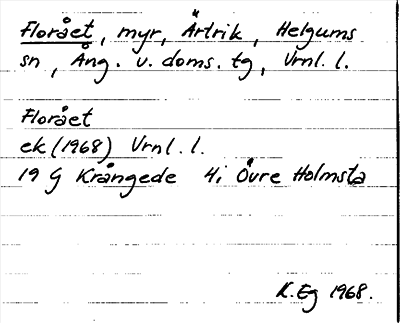 Floråět, myr, Ärtrik, Helgums
sn, Ång. v. doms. tg, Vrnl. l.
Florået
ek (1968) Vrnl. l.
19 G Krångede 4i Övre Holmsta
K. Eg 1968.